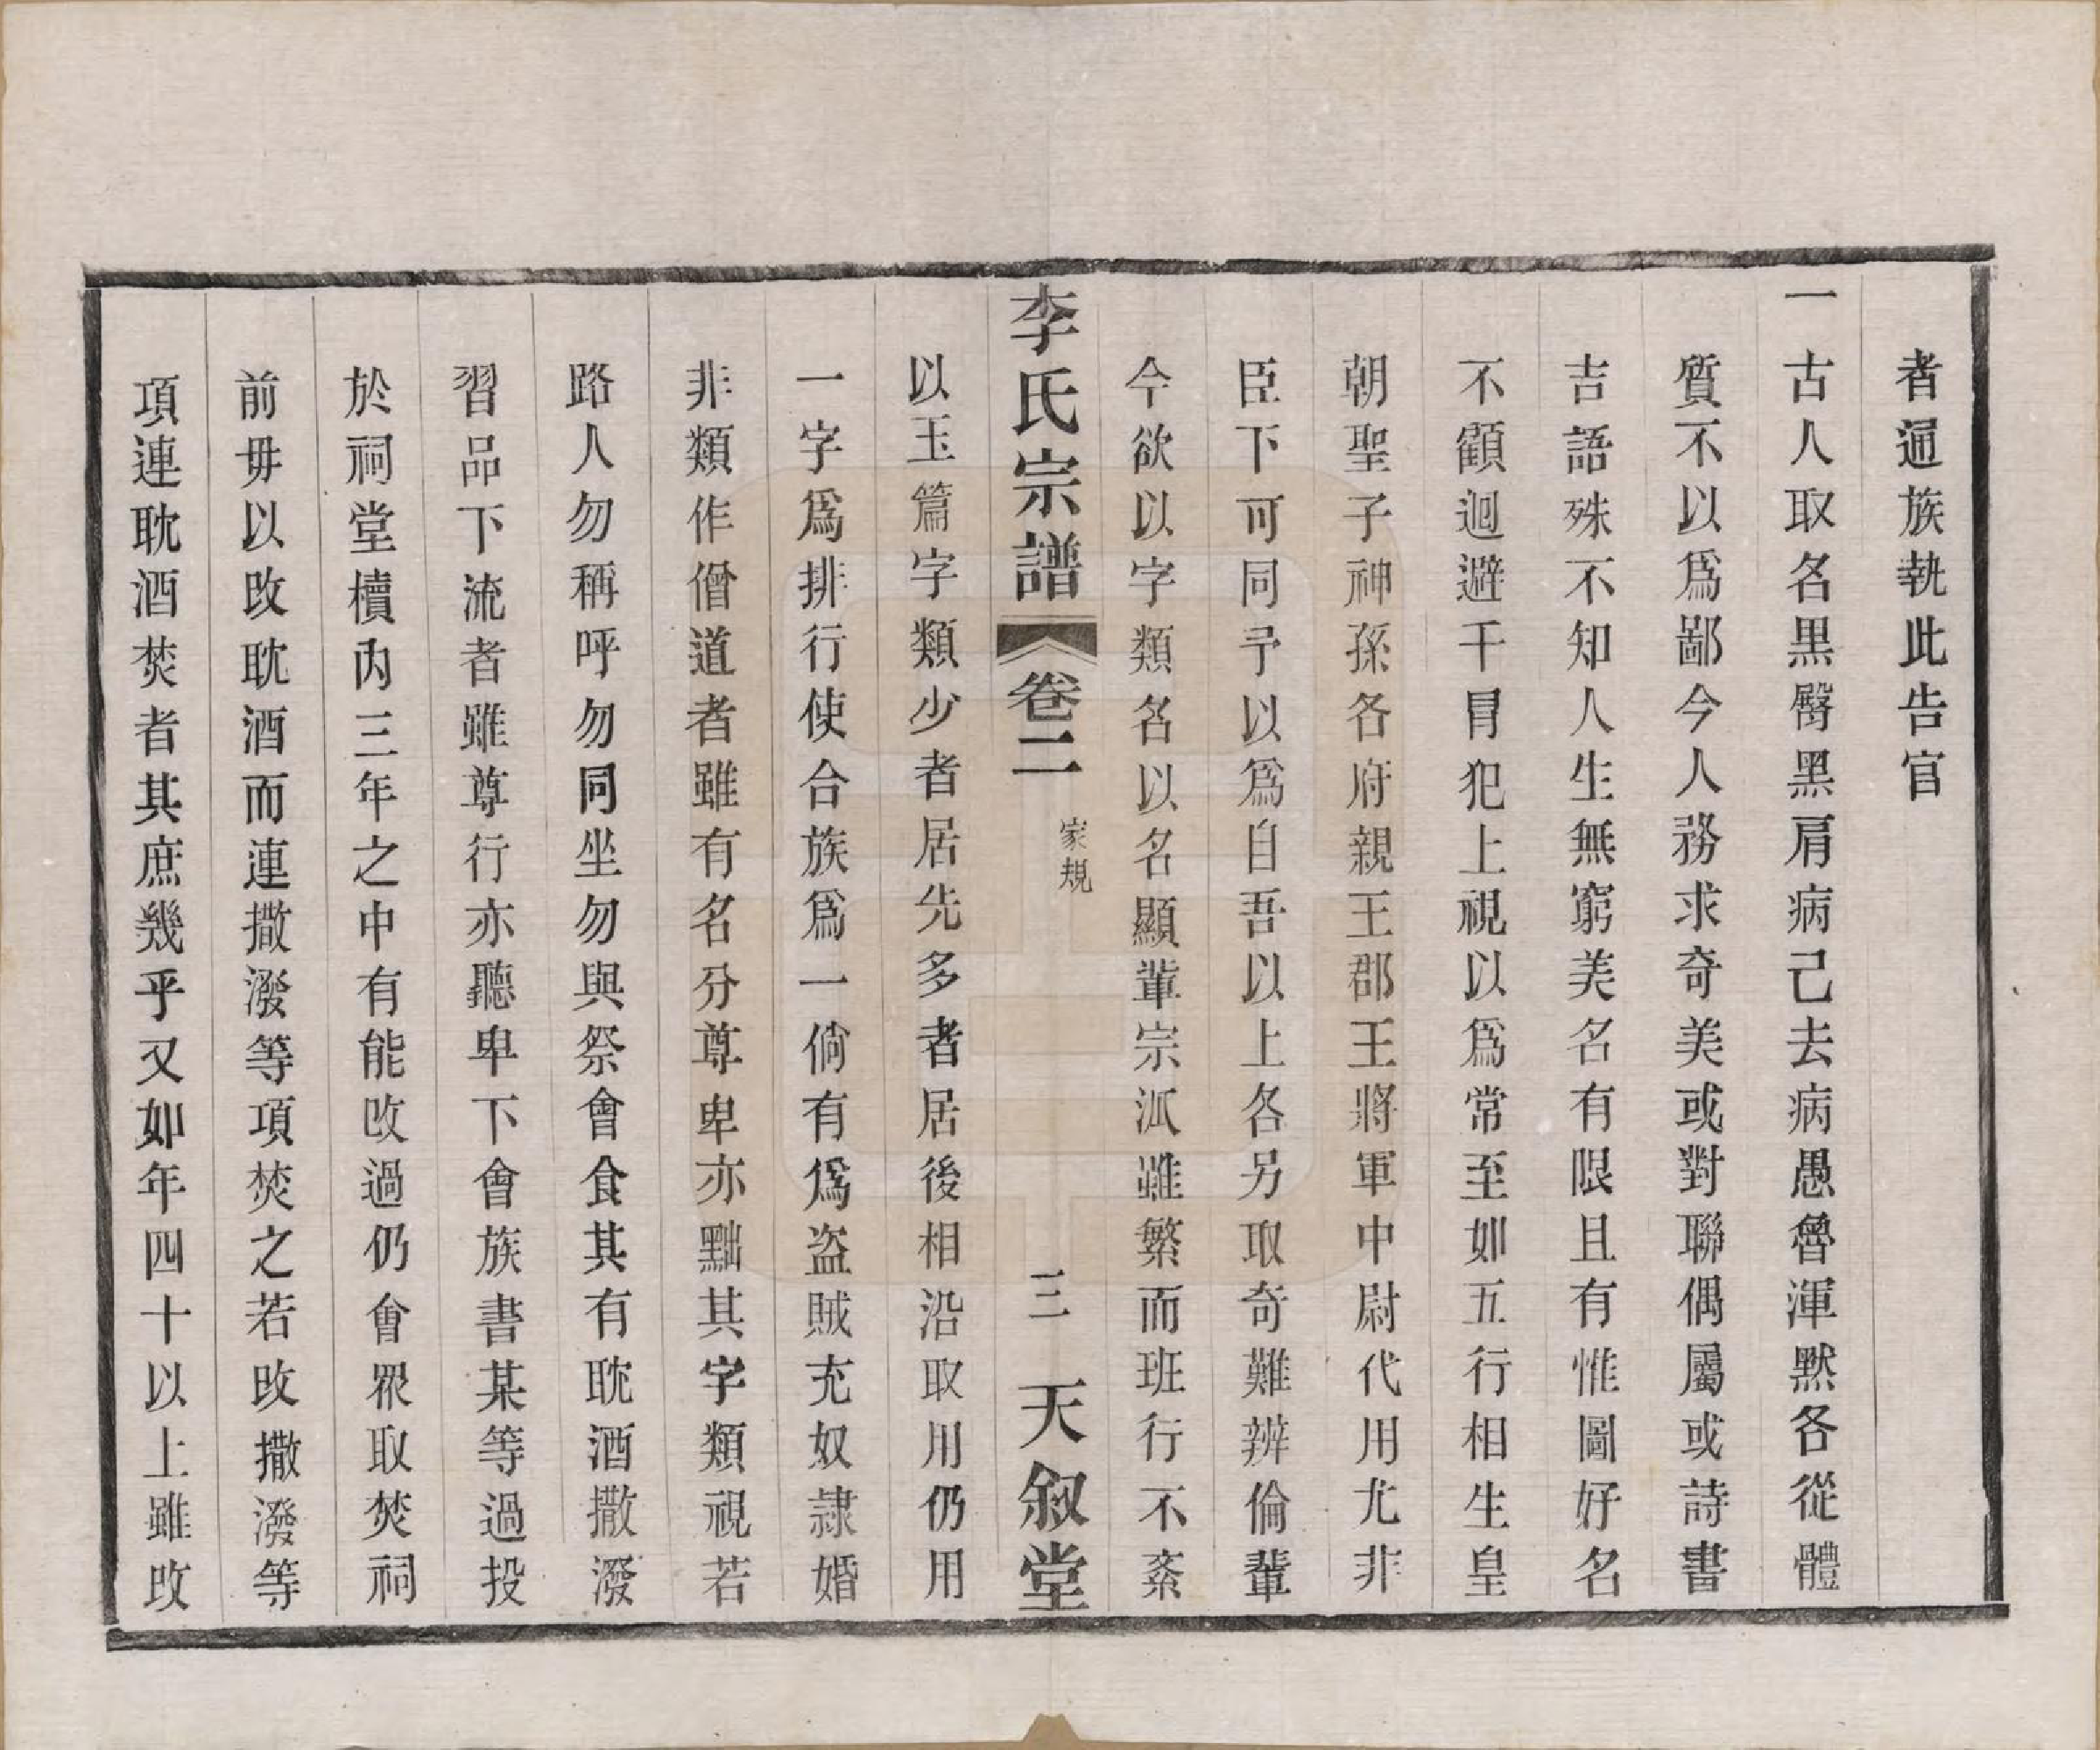 者通族執此告官
一古人取名黒臀黒肩病己去病愚魯渾默各從體
質不以爲鄙今人務求奇美或對聯偶屬或詩書
吉語殊不知人生無窮美名有限且有惟圖好名
不顧迴避干冐犯上視以爲常至如五行相生皇
朝聖子神孫各府親王郡王將軍中尉代用尤非
臣下可同予以爲自吾以上各另取奇難辨倫輩
今欲以字類名名以名顯輩宗派雖繁而班行不紊
李氏宗譜
卷二
家規
三
天叙堂
以玉篇字類少者居先多者居後相沿取用仍用
一字爲排行使合族爲一倘有爲盜賊充奴隷婚
非類作僧道者雖有名分尊卑亦黜其字類視若
路人勿稱呼勿同坐勿與祭會食其有耽酒撒潑
習品下流者雖尊行亦聽卑下會族書某等過投
於祠堂櫝內三年之中有能攺過仍會眾取焚祠
前毋以攺耽酒而連撒潑等項焚之若攺撒潑等
項連耽酒焚者其庶幾乎又如年四十以上雖攺